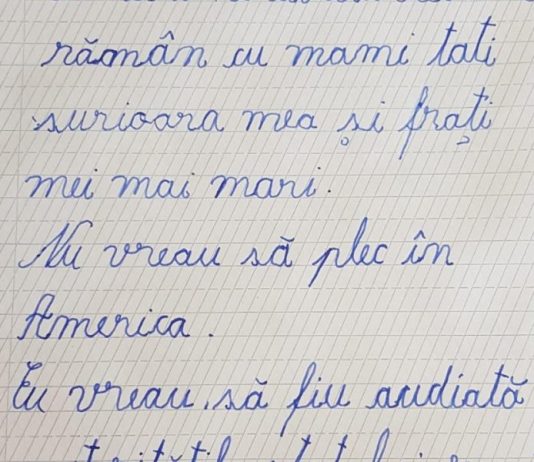 rămân cu mami tati
surioara mea și frați
mei mai mari.
Nu vreau să plec în
America.
Eu vreau, să fiu audiată